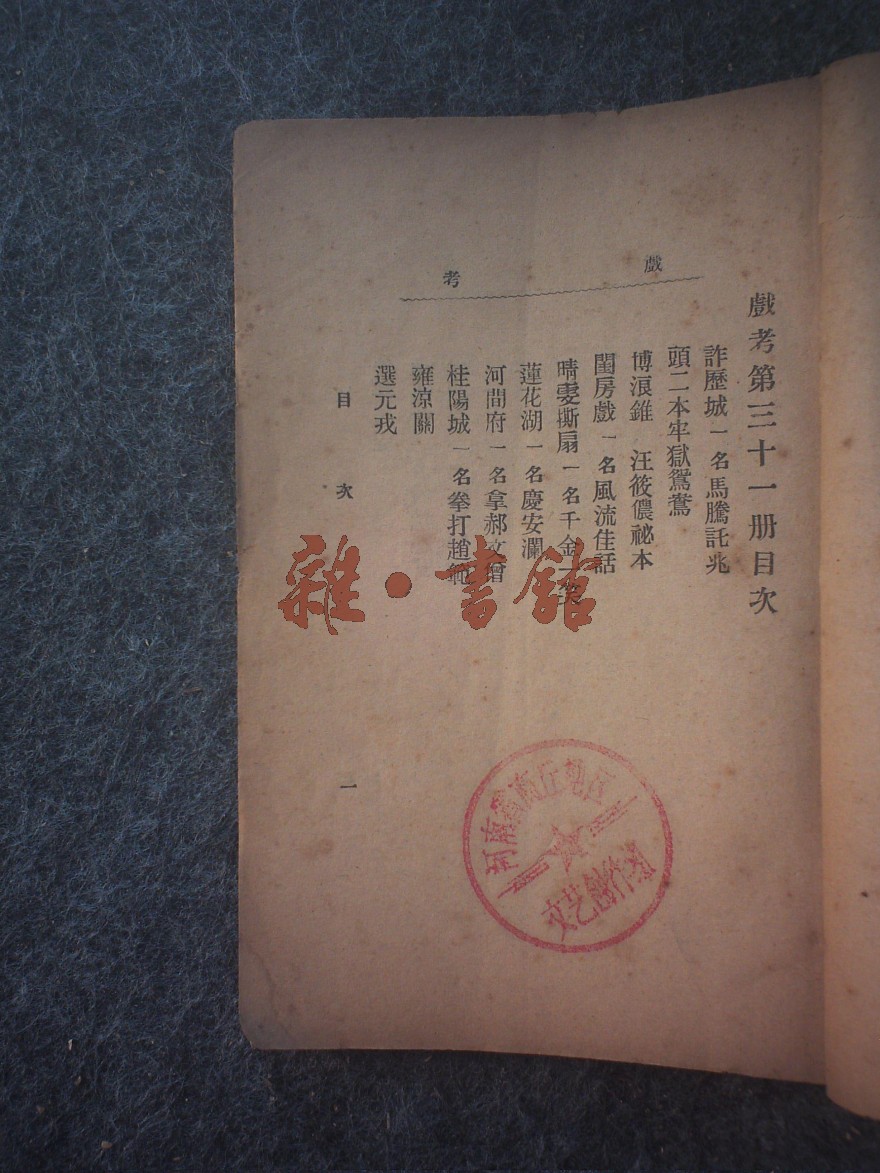 戲考第三十一册目次
詐歷城 一名馬騰託兆
頭二本牢獄鴛鴦
博浪錐 汪筱儂祕本
閨房戲 一名風流佳話
晴雯撕扇 一名千金一笑
蓮花湖 一名慶安瀾
河間府 一名拿郝文僧
桂陽城 一名拳打趙範
雍涼關
選元戎
戲考
目次
一
雜·書館
河南省商丘地区
文艺创作队